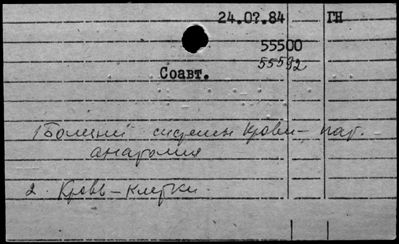 24.07.84 ГН
55500
55592
Соавт.
1 Болезни системы крови - пат.
анатомия
2. Кровь - клетки.